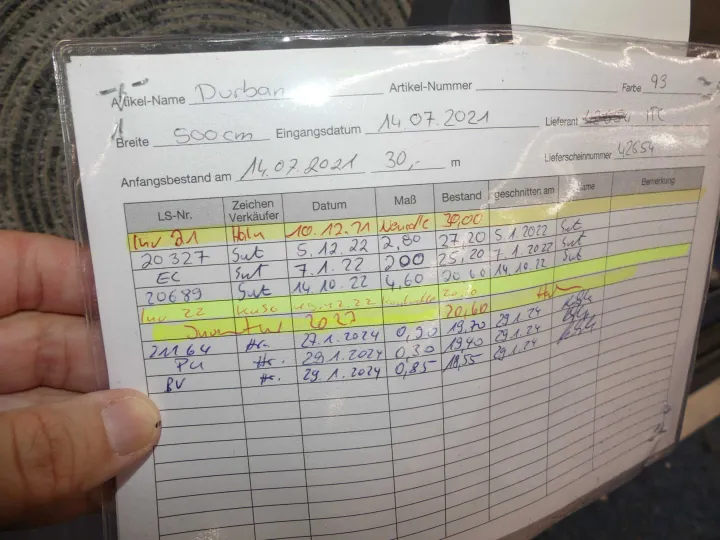 Artikel-Name Durban Artikel-Nummer Farbe 93
Breite 500cm Eingangsdatum 14.07.2021 Lieferant ITC
Anfangsbestand am 14.07.2021 30,- m Lieferscheinnummer 42654
LS-Nr. Zeichen Verkäufer Datum Maß Bestand geschnitten am Name Bemerkung
Inv 21 10.12.21 30,00
20327 Sut 5.12.22 2,80 27,20 5.1.2022 Sut
EC Sut 7.1.22 200 25,20 7.1.2022 Sut
20689 Sut 14.10.22 4,60 20 60 14.10.22 Sut
Inv 22
Inventur 20,60
21164 Hr. 27.1.2024 19.70 29.1.24
PU Hr. 29.1.2024 0,30 1940 29.1.24
BV Hr. 29.1.2024 0,85 18,55 29.1.24